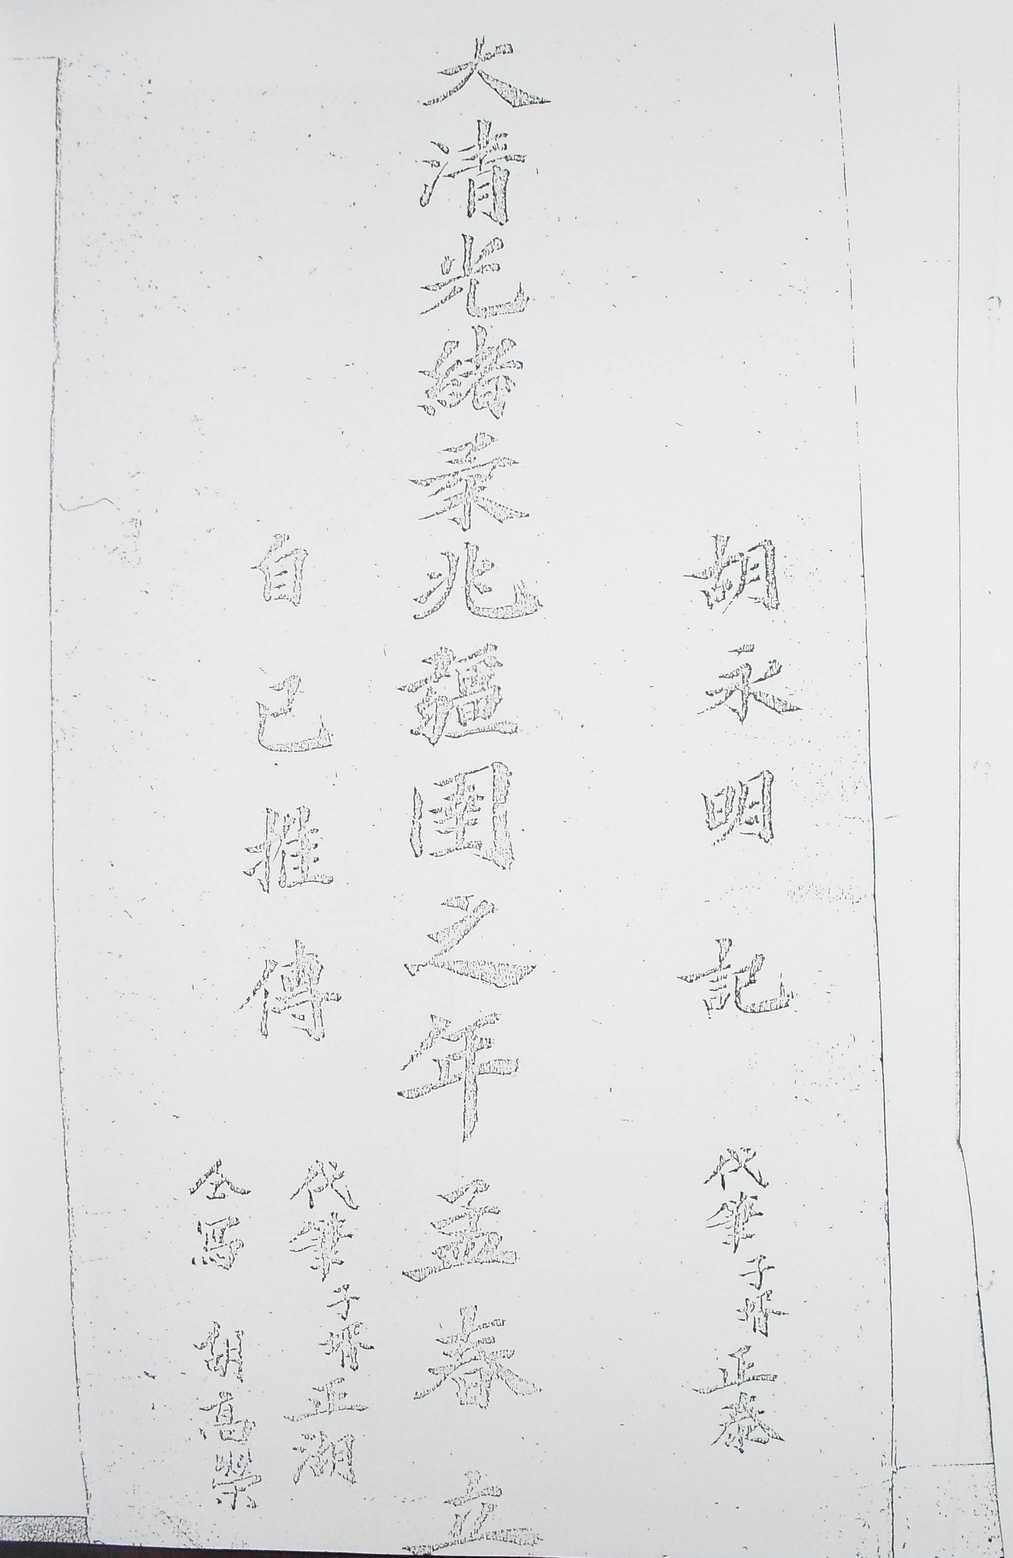 胡永明記 代筆子婿正
大清光緒柔兆疆圉之年孟春立
自己推傳 代筆子婿正湖
仝寫 高榮